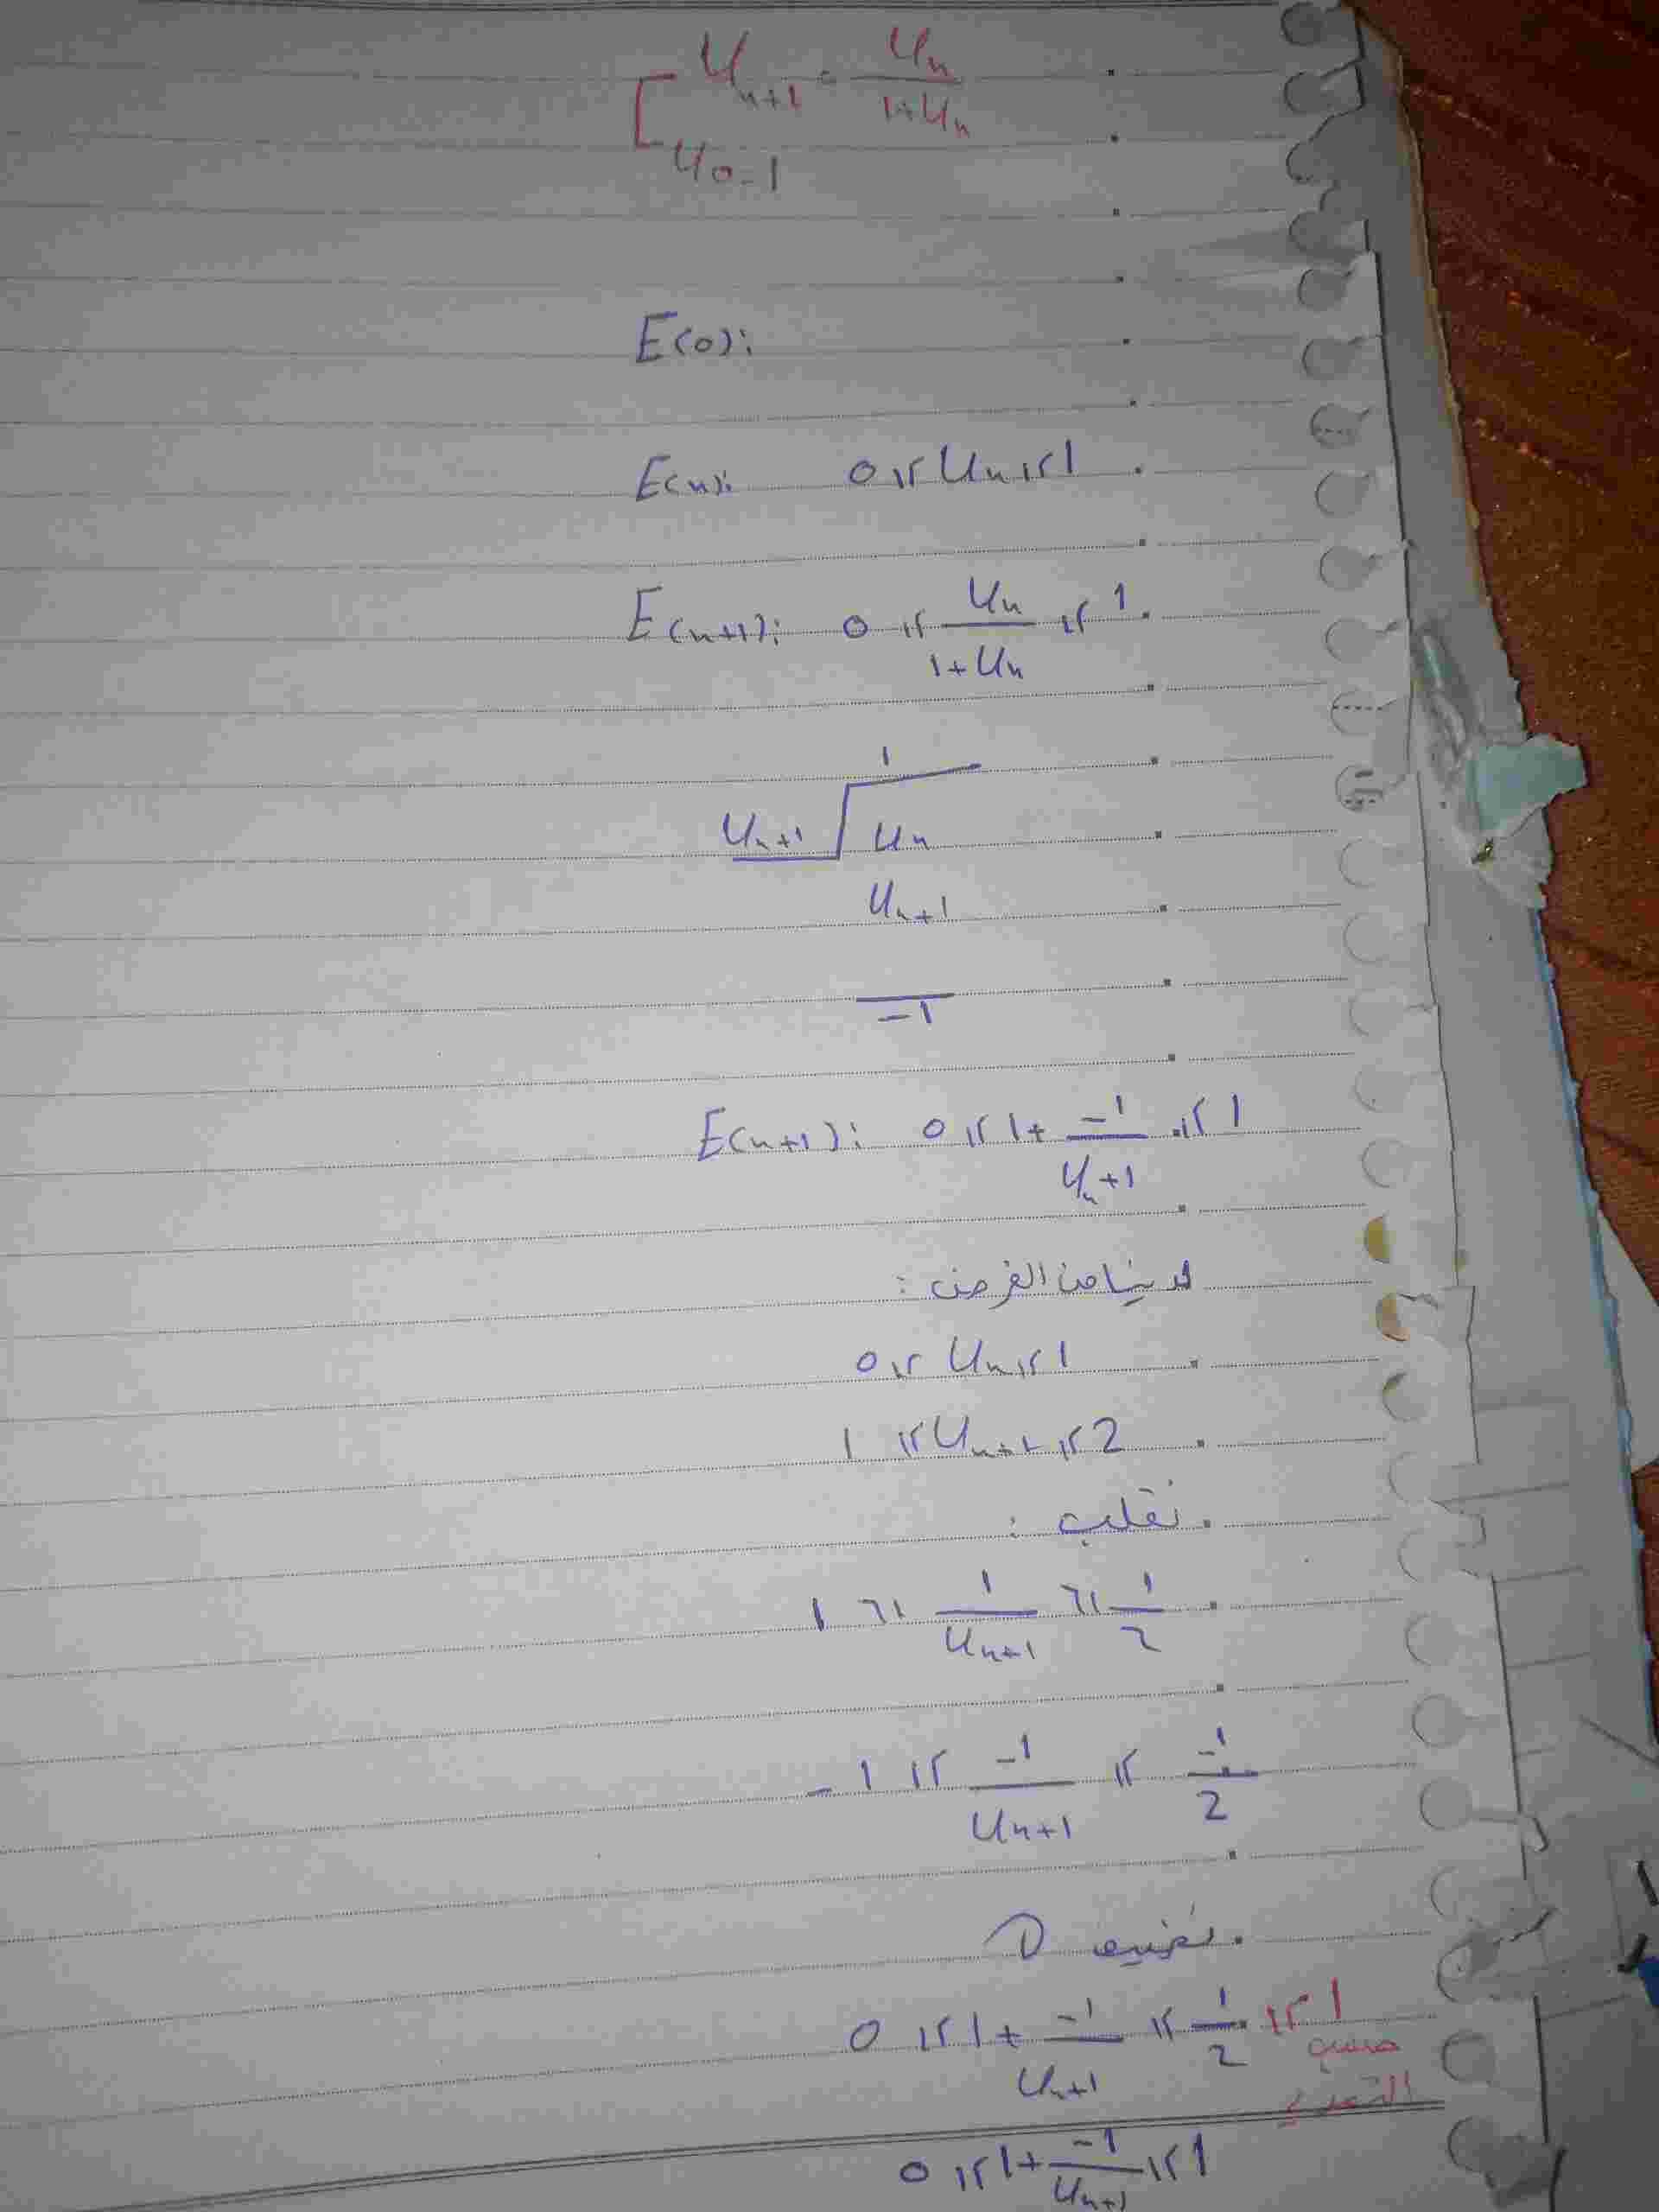 U_{n+1} = U_n / (1+U_n)
U_0 = 1
E(0):
E(n): 0 ≤ U_n ≤ 1
E(n+1): 0 ≤ U_n / (1+U_n) ≤ 1
1
U_n+1 U_n
U_n+1
-1
E(n+1): 0 ≤ 1 + -1 / (U_n+1) ≤ 1
لدينا من الفرض :
0 ≤ U_n ≤ 1
1 ≤ U_n+1 ≤ 2
نقلب :
1 ≥ 1 / (U_n+1) ≥ 1/2
-1 ≤ -1 / (U_n+1) ≤ -1/2
نضيف 1
0 ≤ 1 + -1 / (U_n+1) ≤ 1/2 ≤ 1
حسب
التعدي
0 ≤ 1 + -1 / (U_n+1) ≤ 1